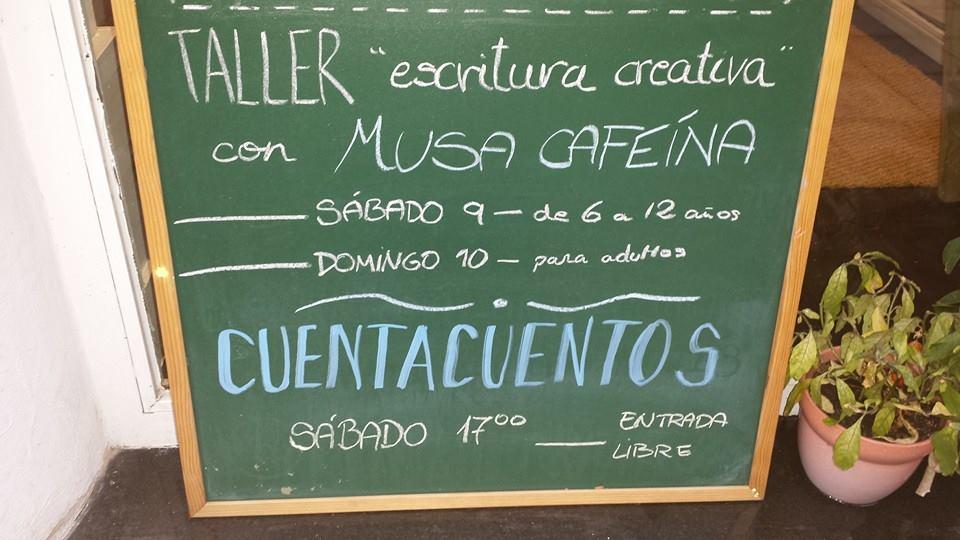 TALLER "escritura creativa"
con MUSA CAFEÍNA
SÁBADO 9 — de 6 a 12 años
DOMINGO 10 — para adultos
CUENTACUENTOS
SÁBADO 17⁰⁰ — ENTRADA
LIBRE